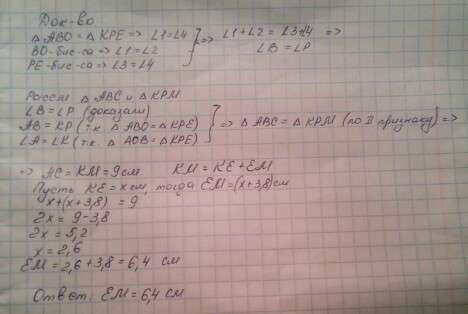 Док-во
△ ABO = △ KPE => ∠1=∠4
BO-бис-са => ∠1=∠2
PE-бис-са => ∠3=∠4
} => ∠1+∠2 = ∠3+∠4 =>
∠B = ∠P
Рассм △ ABC и △ KPM
∠B = ∠P (доказали)
AB = KP (т.к. △ ABO = △ KPE)
∠A = ∠K (т.к. △ AOB = △ KPE)
} => △ ABC = △ KPM (по II признаку) =>
=> AC = KM = 9 см KM = KE + EM
Пусть KE = x см, тогда EM = (x+3,8) см
x+(x+3,8) = 9
2x = 9-3,8
2x = 5,2
x = 2,6
EM = 2,6 + 3,8 = 6,4 см
Ответ: EM = 6,4 см